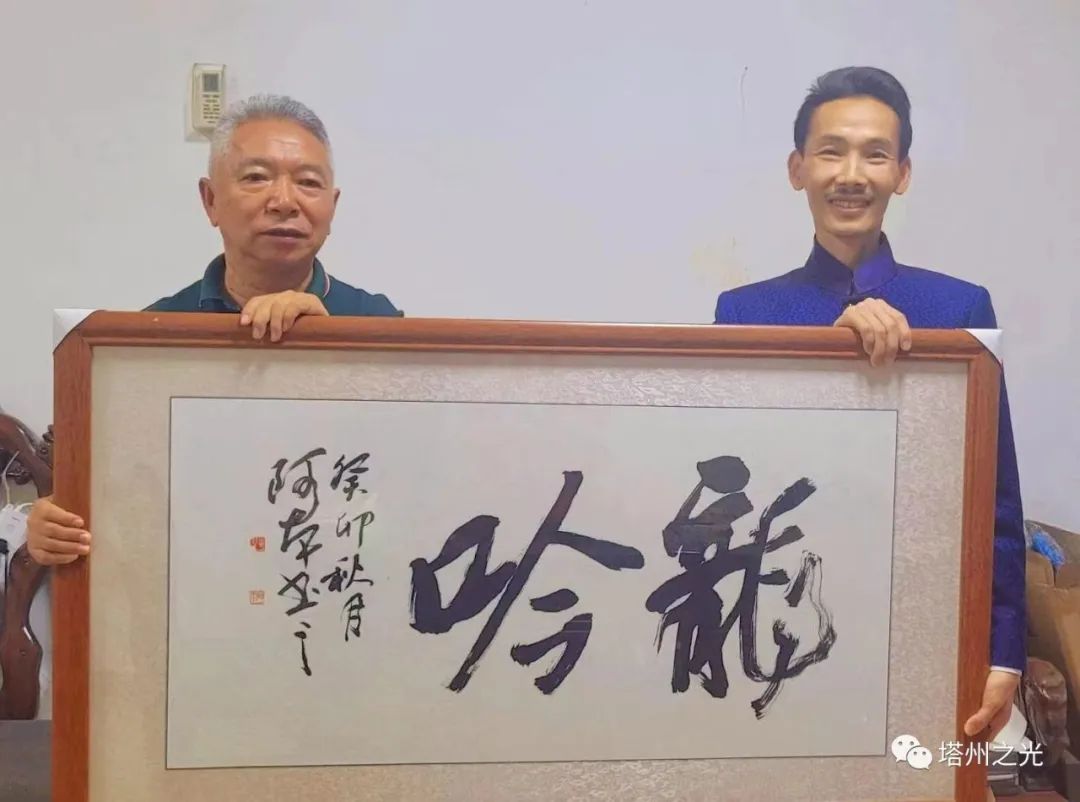 龍吟
癸卯秋月
阿年书之
塔州之光